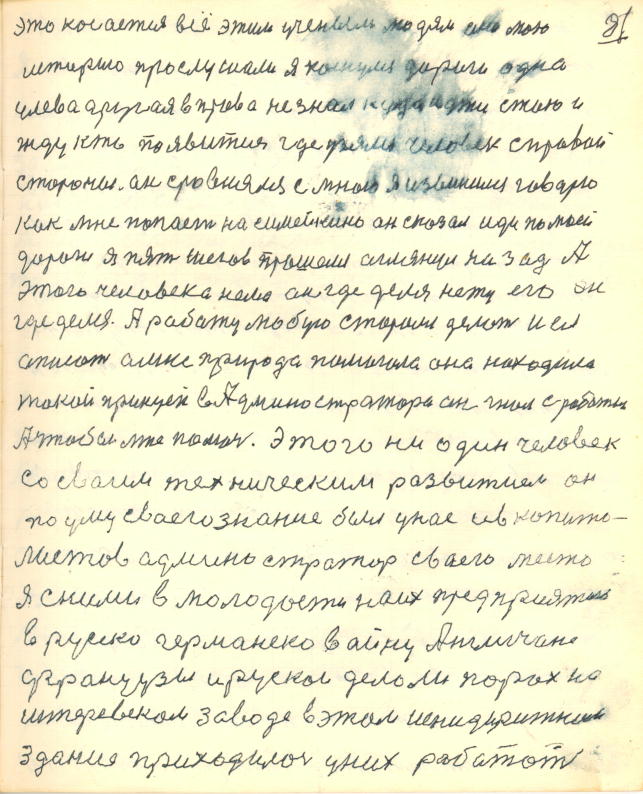 81
это косается всё этим учёным людям они мою
историю прослушали я кончил дороги одна
улева другая вправа незнал куда идти стаю и
жду кто появится где взялся человек справай
стороны. ан сровнялся с мною я извинился говарю
как мне попаст на симейкино ан сказал иди помоей
дороги я пят шегов прошол аглянул на зад А
Этого человека нема ан где делся нету его он
где делся. А работу любую старался делат и ея
описат амне природа помогала она находила
такой принцеп в Администратора ан гнал сработы
Ачтобы мне помоч. Этого ни один человек
со сваим техническим развитием он
по уму сваего знание был унас ив копита-
листов админостратор сваего места
я сними в молодости наих предприятиях
в русско германско вайну Англичане
французы ируские делали порох на
иштеревском заводе вэтом
здания приходилос уних работат